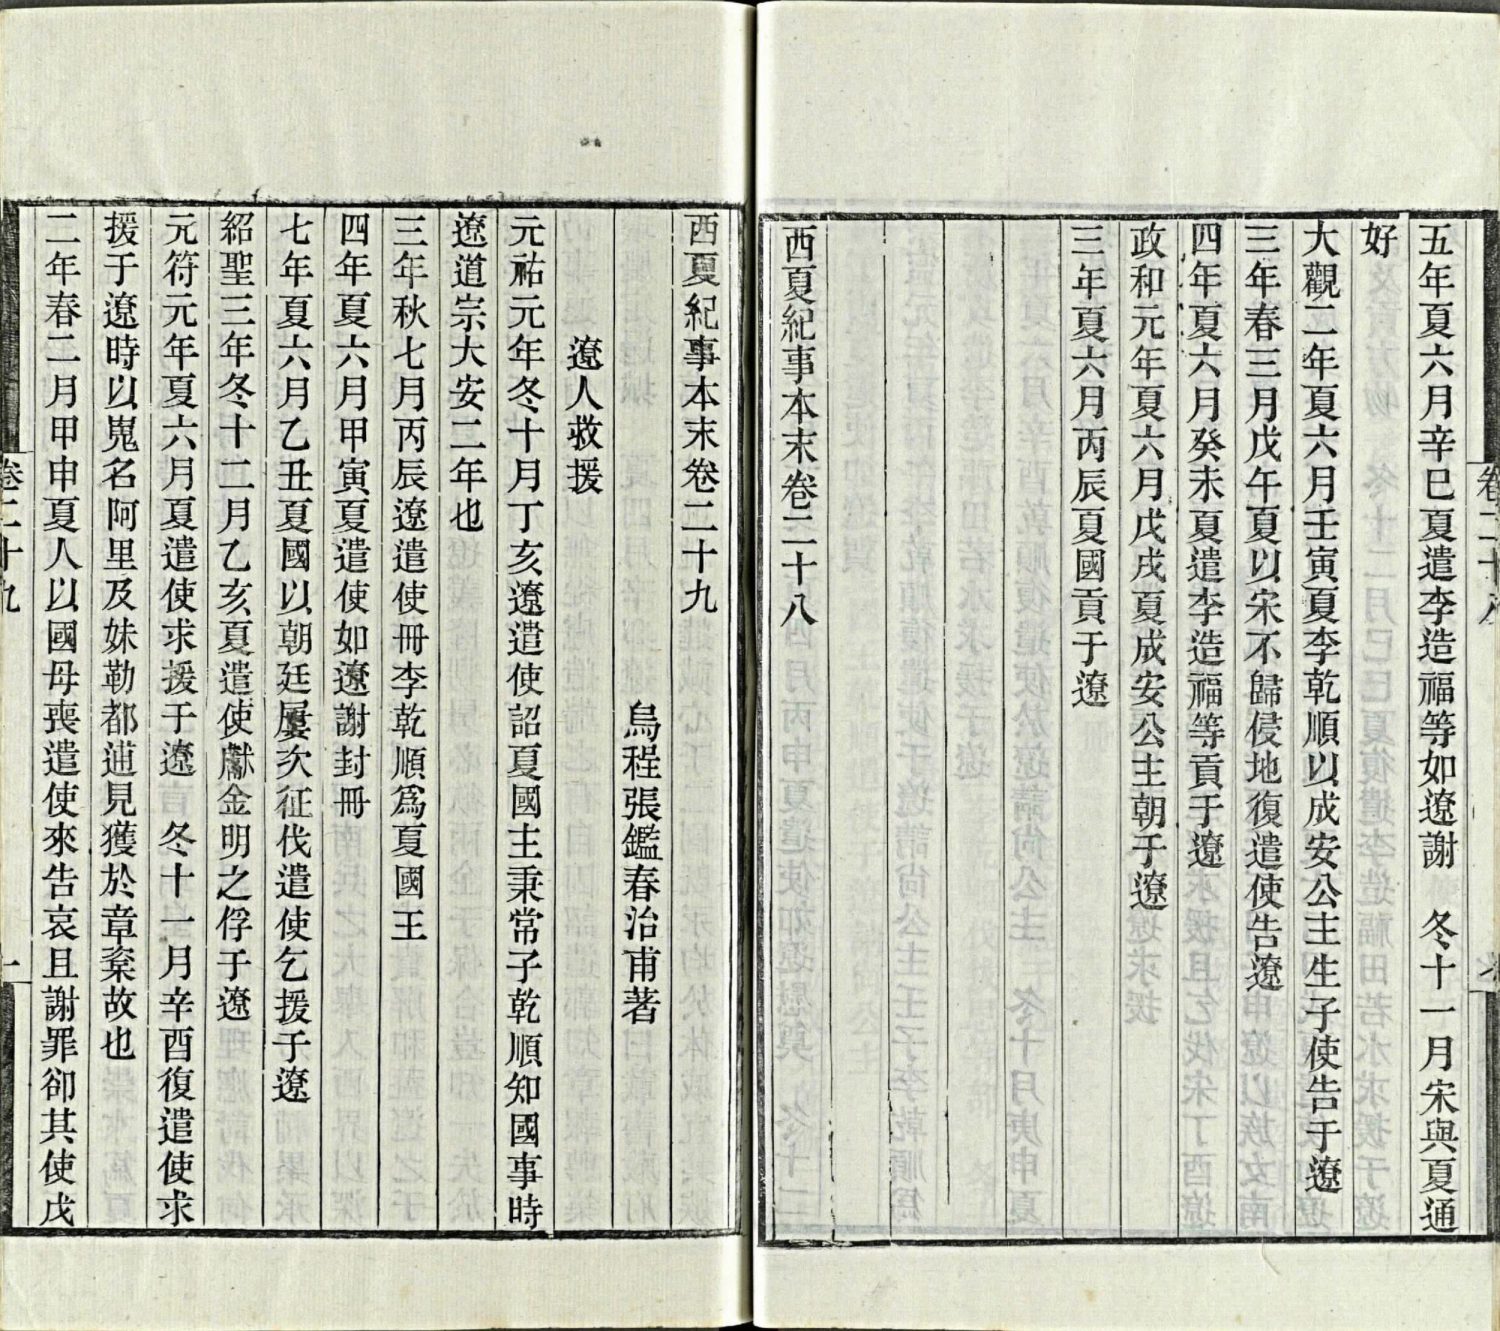 五年夏六月辛巳夏遣李造福等如遼謝　冬十一月宋與夏通
好
大觀二年夏六月壬寅夏李乾順以成安公主生子使告于遼
三年春三月戊午夏以宋不歸侵地復遣使告遼
四年夏六月癸未夏遣李造福等貢于遼
政和元年夏六月戊戌夏成安公主朝于遼
三年夏六月丙辰夏國貢于遼
西夏紀事本末卷二十八
西夏紀事本末卷二十九
烏程張鑑春治甫著
遼人救援
元祐元年冬十月丁亥遼遣使詔夏國主秉常子乾順知國事時
遼道宗大安二年也
三年秋七月丙辰遼遣使冊李乾順爲夏國王
四年夏六月甲寅夏遣使如遼謝封冊
七年夏六月乙丑夏國以朝廷屢次征伐遣使乞援于遼
紹聖三年冬十二月乙亥夏遣使獻金明之俘于遼
元符元年夏六月夏遣使求援于遼　冬十一月辛酉復遣使求
援于遼時以嵬名阿里及妹勒都逋見獲於章楶故也
二年春二月甲申夏人以國母喪遣使來告哀且謝罪卻其使戊
卷二十九
一